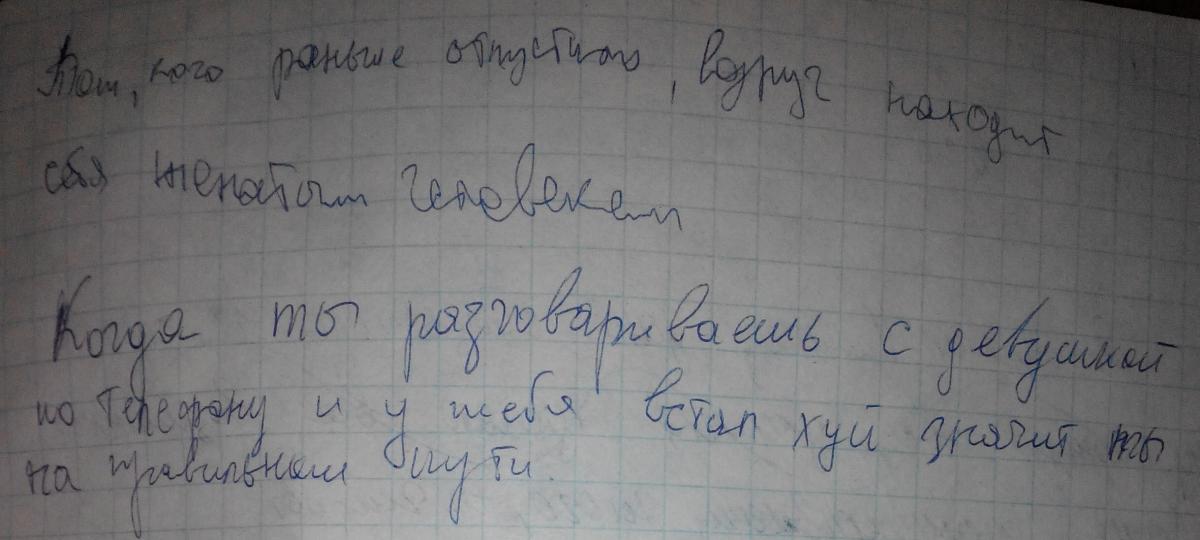 Тот, кого раньше отпустило, вдруг находит
себя женатым человеком
Когда ты разговариваешь с девушкой
по телефону и у тебя встал хуй значит ты
на правильном пути.